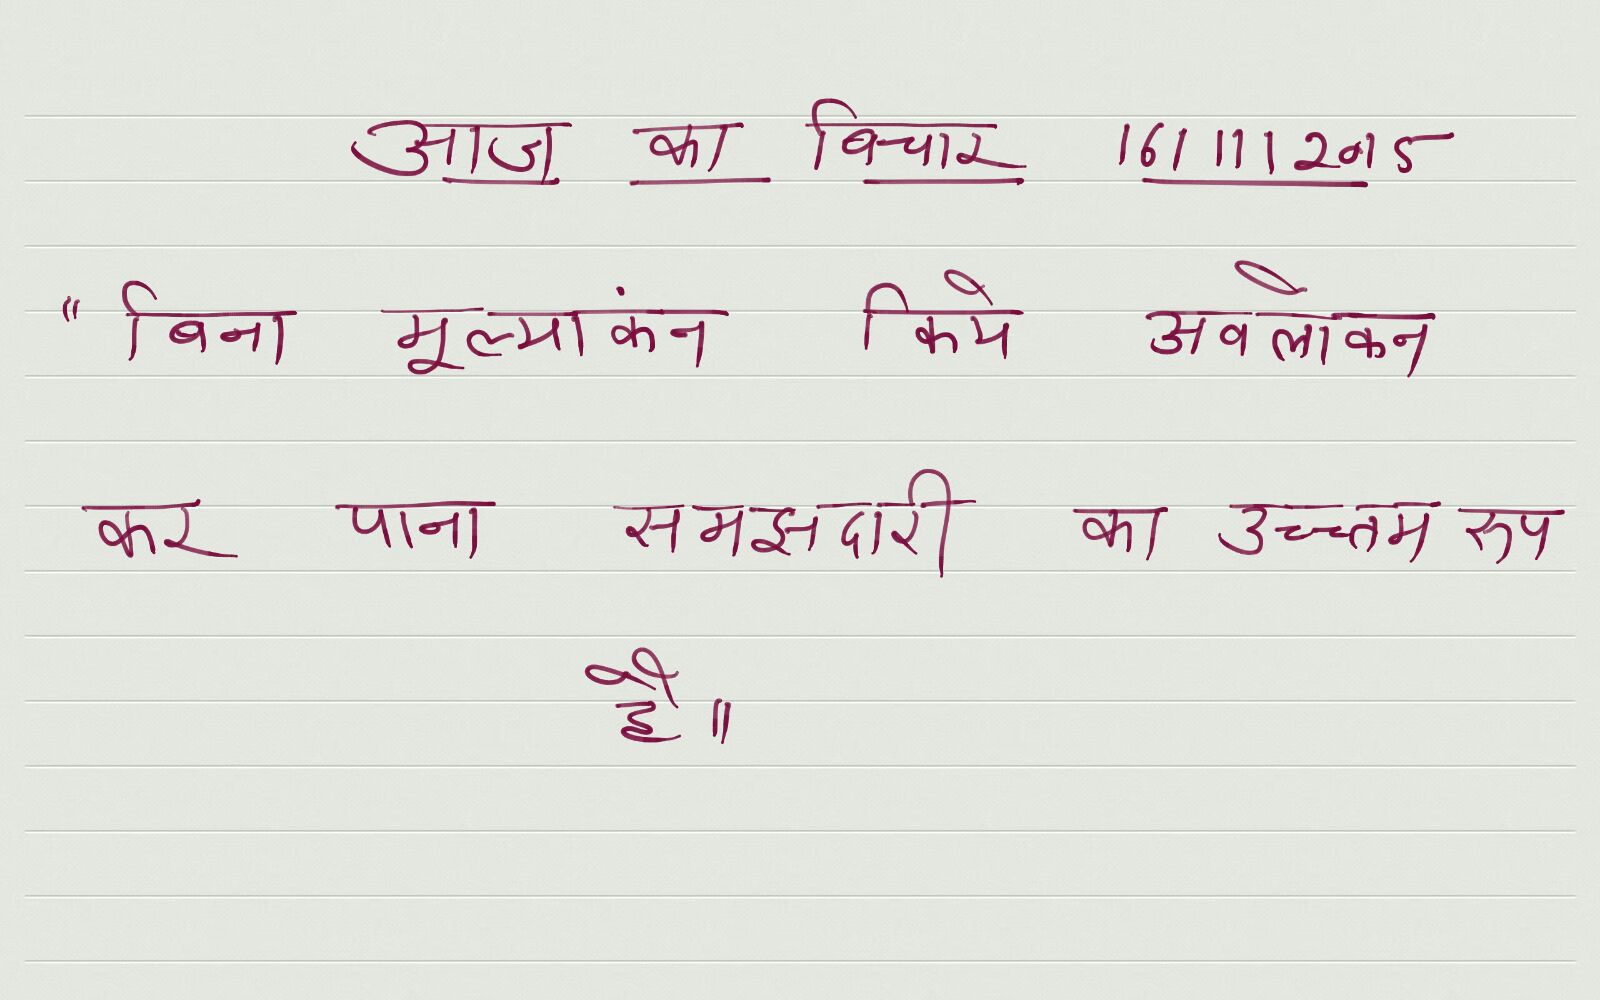 आज का विचार 16/11/2015
"बिना मूल्यांकन किये अवलोकन
कर पाना समझदारी का उच्च्तम रूप
है॥